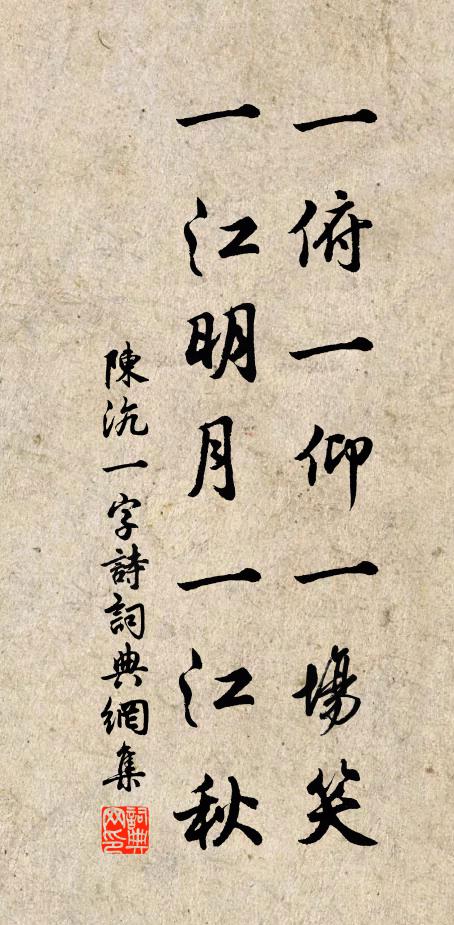 一俯一仰一場笑
一江明月一江秋
陳沆一字詩詞典網集
詞典网印